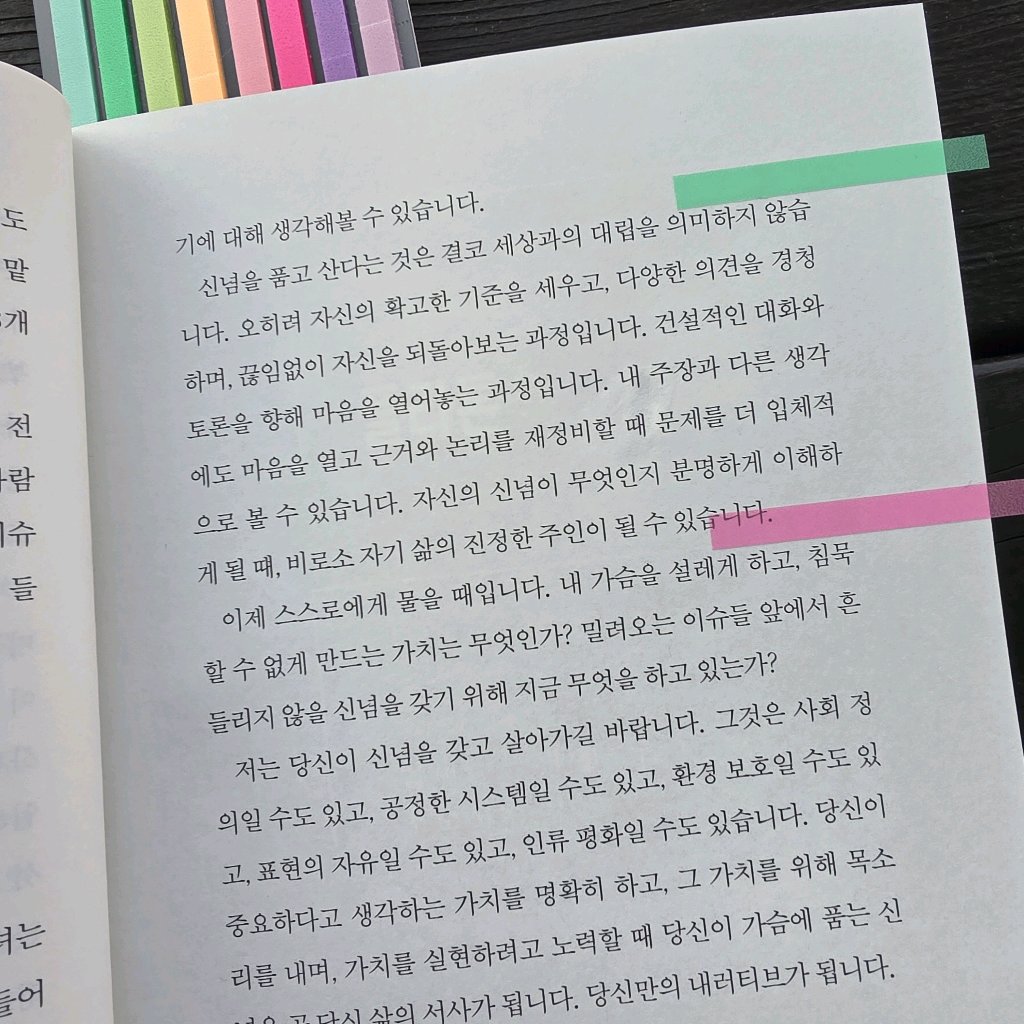 도
맡
개
전
람
슈
들
려는
들어
기에 대해 생각해볼 수 있습니다.
신념을 품고 산다는 것은 결코 세상과의 대립을 의미하지 않습
니다. 오히려 자신의 확고한 기준을 세우고, 다양한 의견을 경청
하며, 끊임없이 자신을 되돌아보는 과정입니다. 건설적인 대화와
토론을 향해 마음을 열어놓는 과정입니다. 내 주장과 다른 생각
에도 마음을 열고 근거와 논리를 재정비할 때 문제를 더 입체적
으로 볼 수 있습니다. 자신의 신념이 무엇인지 분명하게 이해하
게 될 때, 비로소 자기 삶의 진정한 주인이 될 수 있습니다.
이제 스스로에게 물을 때입니다. 내 가슴을 설레게 하고, 침묵
할 수 없게 만드는 가치는 무엇인가? 밀려오는 이슈들 앞에서 흔
들리지 않을 신념을 갖기 위해 지금 무엇을 하고 있는가?
저는 당신이 신념을 갖고 살아가길 바랍니다. 그것은 사회 정
의일 수도 있고, 공정한 시스템일 수도 있고, 환경 보호일 수도 있
고, 표현의 자유일 수도 있고, 인류 평화일 수도 있습니다. 당신이
중요하다고 생각하는 가치를 명확히 하고, 그 가치를 위해 목소
리를 내며, 가치를 실현하려고 노력할 때 당신이 가슴에 품는 신
념은 곧 당신 삶의 서사가 됩니다. 당신만의 내러티브가 됩니다.